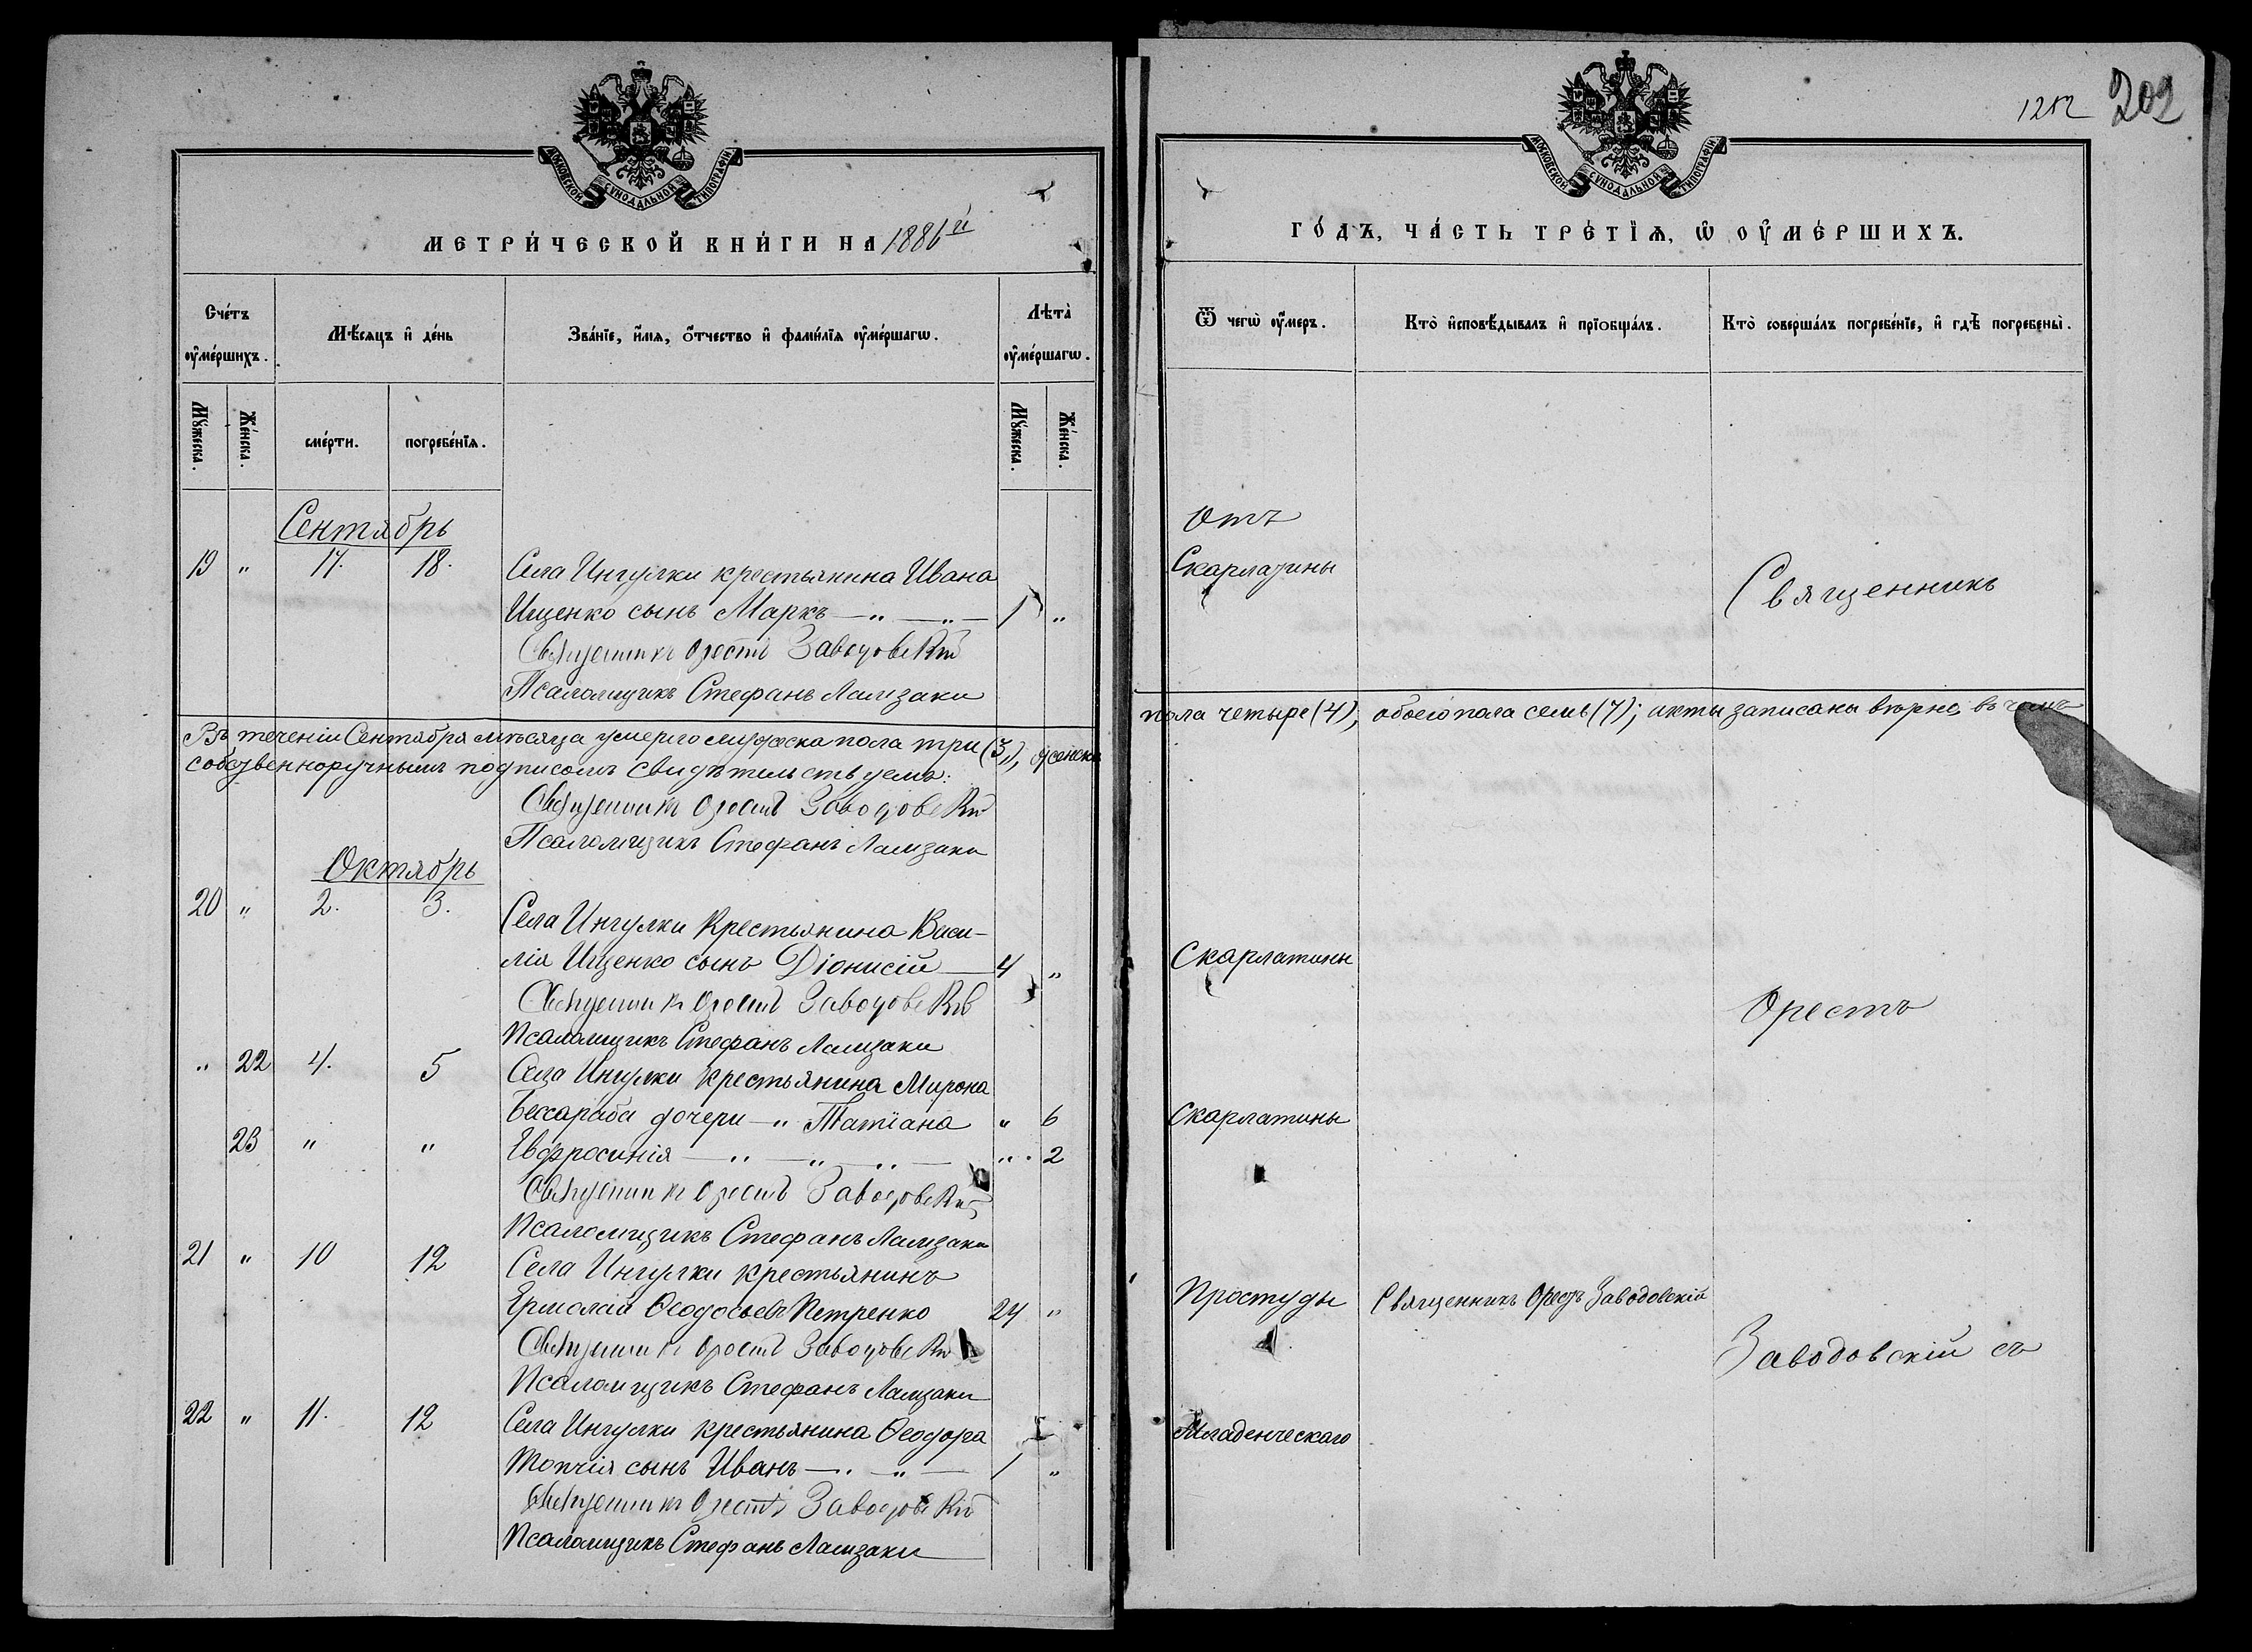 МОСКОВСКОЙ СѴНОДАЛЬНОЙ ТИПОГРАФІИ
МЕТРИ́ЧЕСКОЙ КНИ́ГИ НА 1886й
Сче́тъ ᲂу҆ме́ршихъ.
Мѣ́сяцъ и҆ де́нь
Зва́нїе, и҆́мѧ, ѻ҆́тчество и҆ фами́лїѧ ᲂу҆ме́ршагѡ.
Лѣта̀ ᲂу҆ме́ршагѡ.
Мꙋ́жеска.
Же́нска.
сме́рти.
погребе́нїѧ.
Мꙋ́жеска.
Же́нска.
Сентябрь
19 " 17. 18. Села Ингулки крестьянина Ивана
Ищенко сынъ Маркъ — " — " — 1 "
Священникъ Орестъ Заводовскій
Псаломщикъ Стефанъ Ламзаки
Въ теченіи Сентября мѣсяца умерло мужеска пола три (3), женска
собственноручнымъ подписомъ свидѣтельствуемъ:
Священникъ Орестъ Заводовскій
Псаломщикъ Стефанъ Ламзаки
Октябрь
20 " 2. 3. Села Ингулки Крестьянина Васи-
лія Ищенко сынъ Діонисій — 4 "
Священникъ Орестъ Заводовскій
Псаломщикъ Стефанъ Ламзаки
" 22 4. 5 Села Ингулки крестьянина Мирона
Бессараба дочери — " Татіана " 6
23 " " Евфросинія — " — " — " — " 2
Священникъ Орестъ Заводовскій
Псаломщикъ Стефанъ Ламзаки
21 " 10 12 Села Ингулки крестьянинъ
Ермолай Ѳеодосьевъ Петренко 24 "
Священникъ Орестъ Заводовскій
Псаломщикъ Стефанъ Ламзаки
22 " 11. 12 Села Ингулки крестьянина Ѳеодора
Топчія сынъ Иванъ — " — " — 1 "
Священникъ Орестъ Заводовскій
Псаломщикъ Стефанъ Ламзаки
202
МОСКОВСКОЙ СѴНОДАЛЬНОЙ ТИПОГРАФІИ
ГО́ДЪ, ЧА́СТЬ ТРЕ́ТЇѦ, Ѡ҆ ОУ҆МЕ́РШИХЪ.
Ѿ чегѡ̀ ᲂу҆́меръ.
Кто̀ и҆сповѣ́дывалъ и҆ прїобща́лъ.
Кто̀ соверша́лъ погребе́нїе, и҆ гдѣ̀ погребены̀.
Отъ
Скарлатины
Священникъ
пола четыре (4), обоего пола семь (7); акты записаны вѣрно, въ чемъ
Скарлатины
Орестъ
Скарлатины
Простуды Священникъ Орестъ Заводовскій
Заводовскій съ
Младенческаго